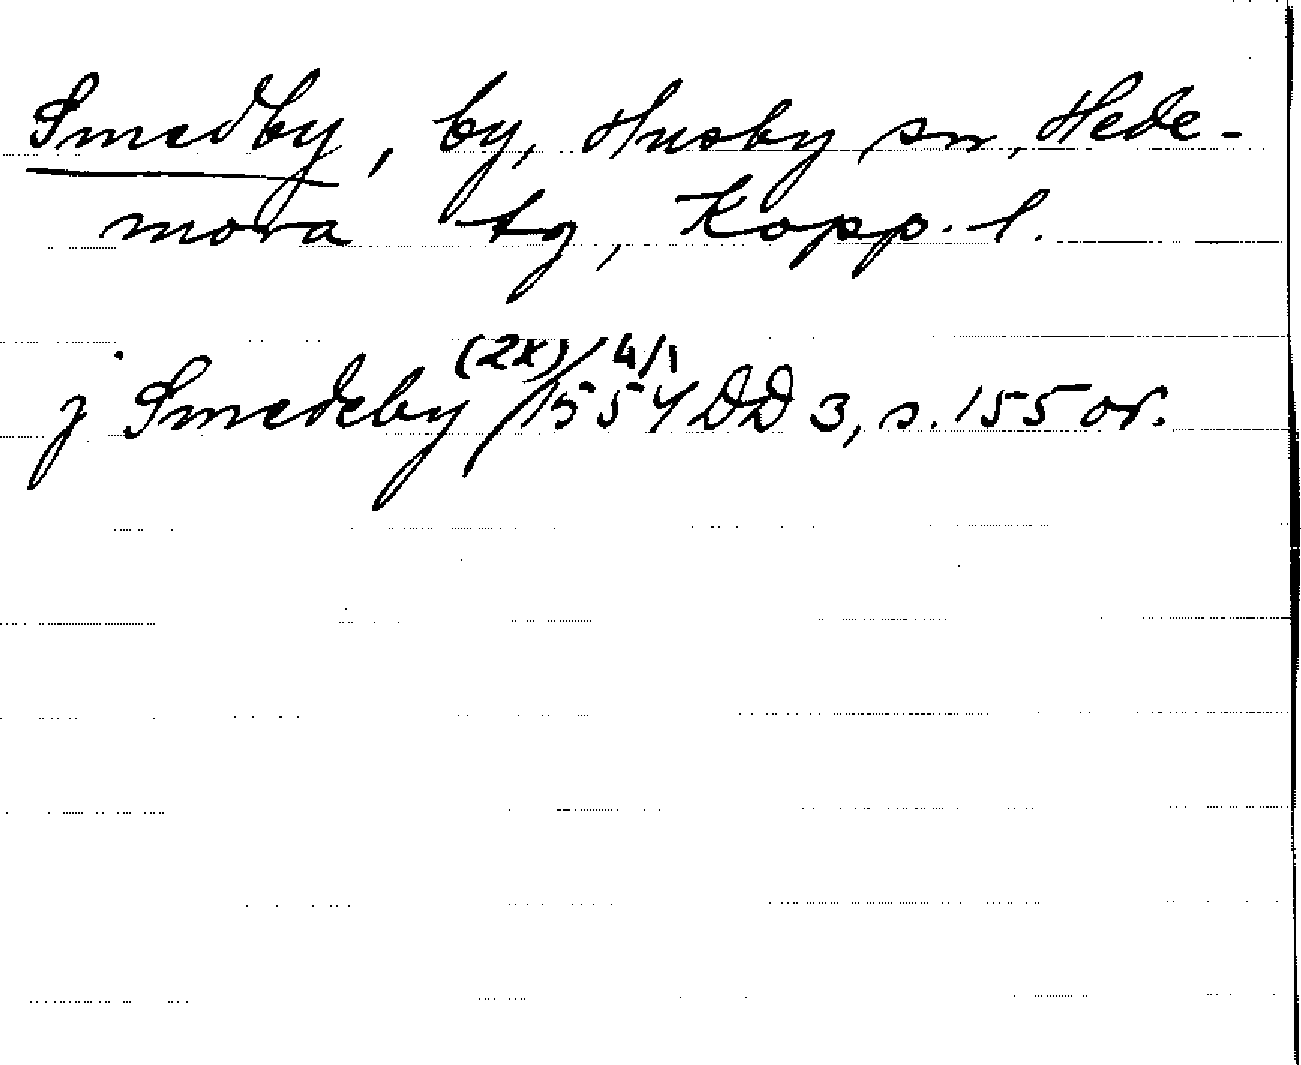 Smedby, by, Husby sn, Hede-
mora tg, Kopp. l.
j Smedeby (2x) / 4/1 1554 DD 3, s. 155 or.